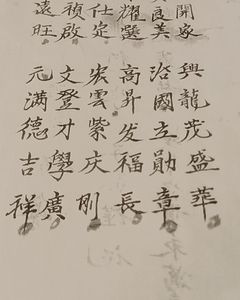 開家興龍茂盛華
良美治國立勛章
耀選高昇发福長
仕定宏雲紫庆刚
禎啟文登才學廣
遠旺元满德吉祥